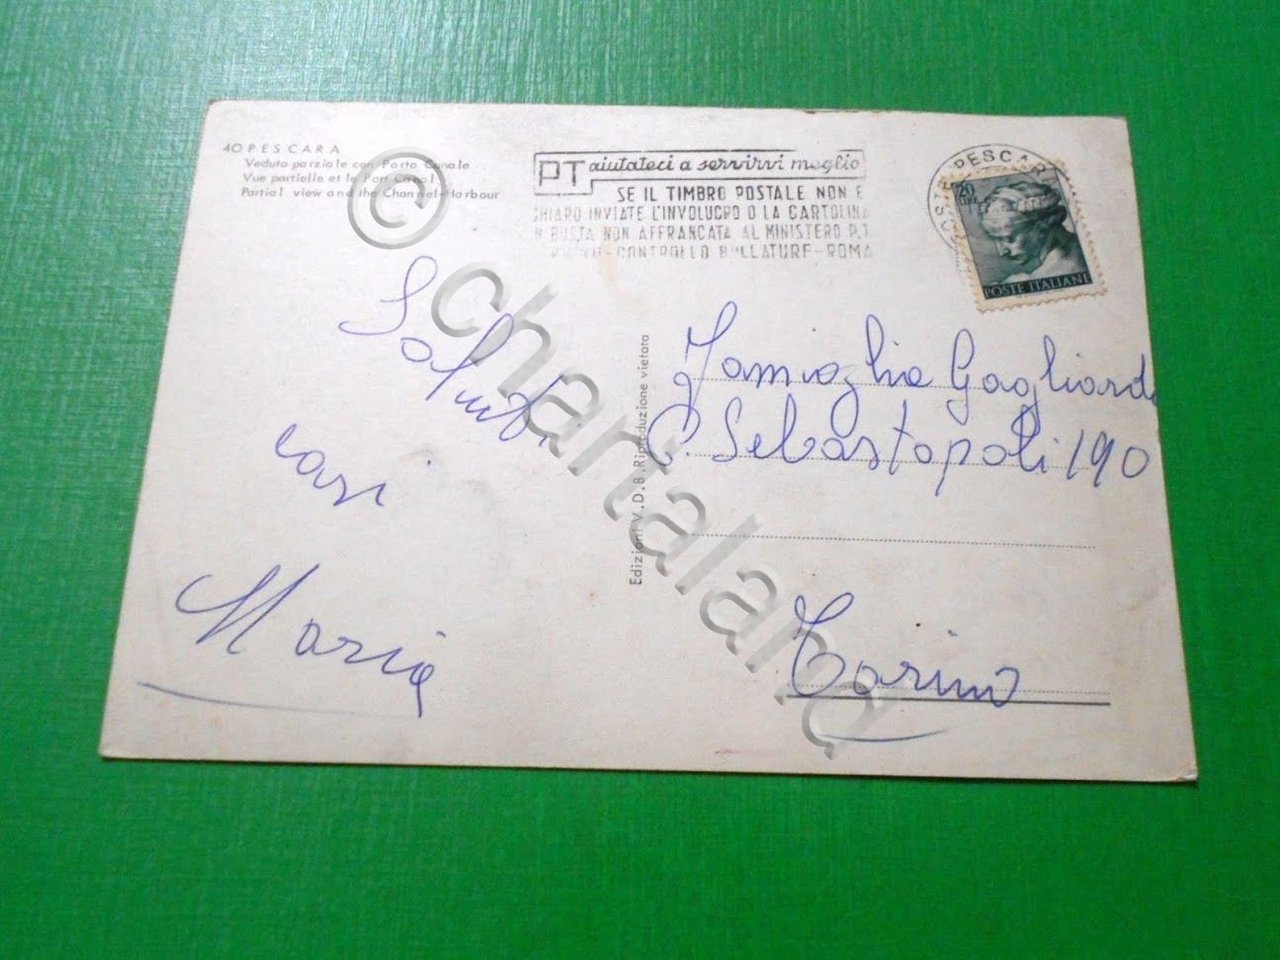 40 PESCARA
Veduta parziale con Porto Canale
Vue partielle et le Port Canal
Partial view and the Channel-Harbour
PT aiutateci a servirvi meglio
SE IL TIMBRO POSTALE NON E
CHIARO INVIATE L'INVOLUCRO O LA CARTOLINA
IN BUSTA NON AFFRANCATA AL MINISTERO P.T.
CONTROLLO BOLLATURE - ROMA
POSTE PESCARA
20
POSTE ITALIANE
Saluti
cari
Maria
Edizioni V.D.B. Riproduzione vietata
Famiglia Gagliardi
C. Sebastopoli 190
Torino
© chartaland